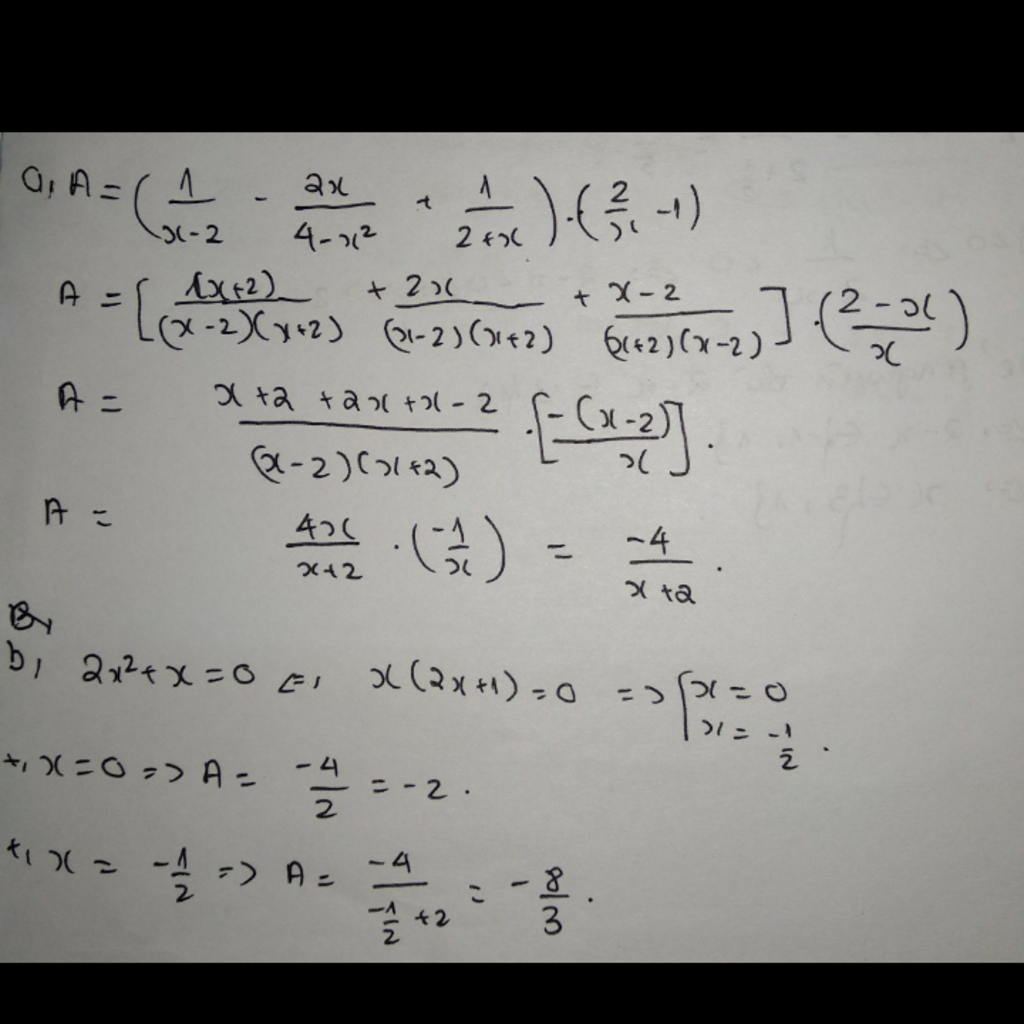 a, A = (1/(x-2) - 2x/(4-x²) + 1/(2+x)) . (2/x - 1)
A = [1(x+2)/((x-2)(x+2)) + 2x/((x-2)(x+2)) + (x-2)/((x+2)(x-2))] . ((2-x)/x)
A = (x+2+2x+x-2)/((x-2)(x+2)) . [-(x-2)/x].
A = 4x/(x+2) . (-1/x) = -4/(x+2).
B,
b, 2x² + x = 0 <=> x(2x+1) = 0 => [x = 0
x = -1/2.
+, x = 0 => A = -4/2 = -2.
+, x = -1/2 => A = -4/(-1/2 + 2) = -8/3.